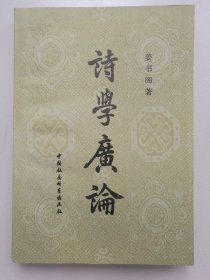 姜书阁著
詩學廣論
中国社会科学出版社